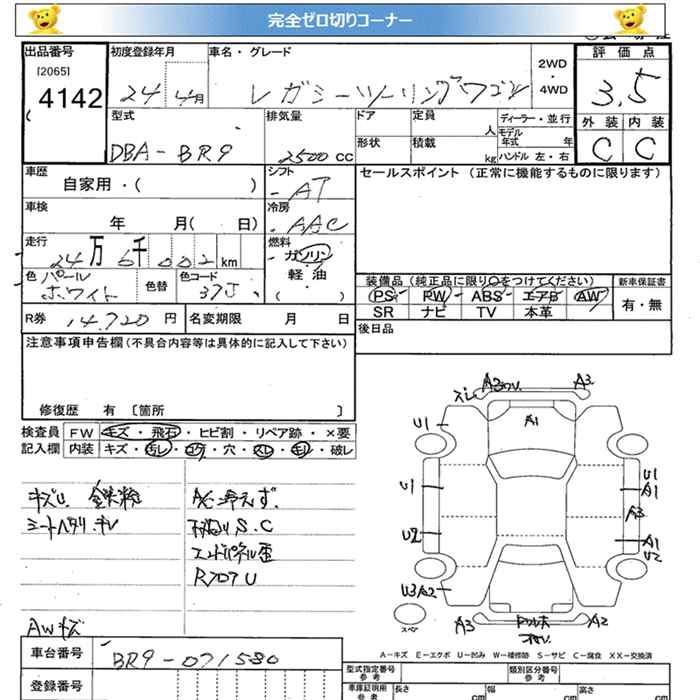 完全ゼロ切りコーナー
出品番号
[2065]
4142
初度登録年月
24 4月
車名・グレード
レガシーツーリングワゴン
2WD
・
4WD
評価点
3.5
外装 内装
C C
型式
DBA-BR9
排気量
2500 cc
ドア
定員
人
形状
積載
kg
ディーラー・並行
モデル年式 年
ハンドル 左・右
車歴
自家用・( )
シフト
AT
セールスポイント (正常に機能するものに限ります)
車検
年 月( 日)
冷房
AAC
走行
24万6千002km
燃料
ガソリン
軽油
( )
色 パール
ホワイト
色替
色コード
37J
装備品 (純正品に限り○をつけてください)
新車保証書
PS PW ABS エアB AW
有・無
SR ナビ TV 本革
R券 14,720円
名変期限 月 日
後日品
注意事項申告欄 (不具合内容等は具体的に記入して下さい)
修復歴 有 〔箇所 〕
検査員
記入欄
FW キズ・飛石・ヒビ割・リペア跡・×要
内装 キズ・汚レ・コゲ・穴・スレ・キレ・破レ
キズU 鉄粉
シートヘタリ・キレ
AWキズ
A/C冷えず.
下廻りS.C
エンドパネル歪
RフロアU
A3
A3
A1
U1
U1
U2
U3A2
U1
A1
A3
A1
U2
A3
A2
スペア
A-キズ E-エクボ U-凹み W-補修跡 S-サビ C-腐食 XX-交換済
車台番号
BR9-071580
登録番号
型式指定番号
参考
類別区分番号
参考
車庫証明用
参考
長さ
cm
幅
cm
高さ
cm